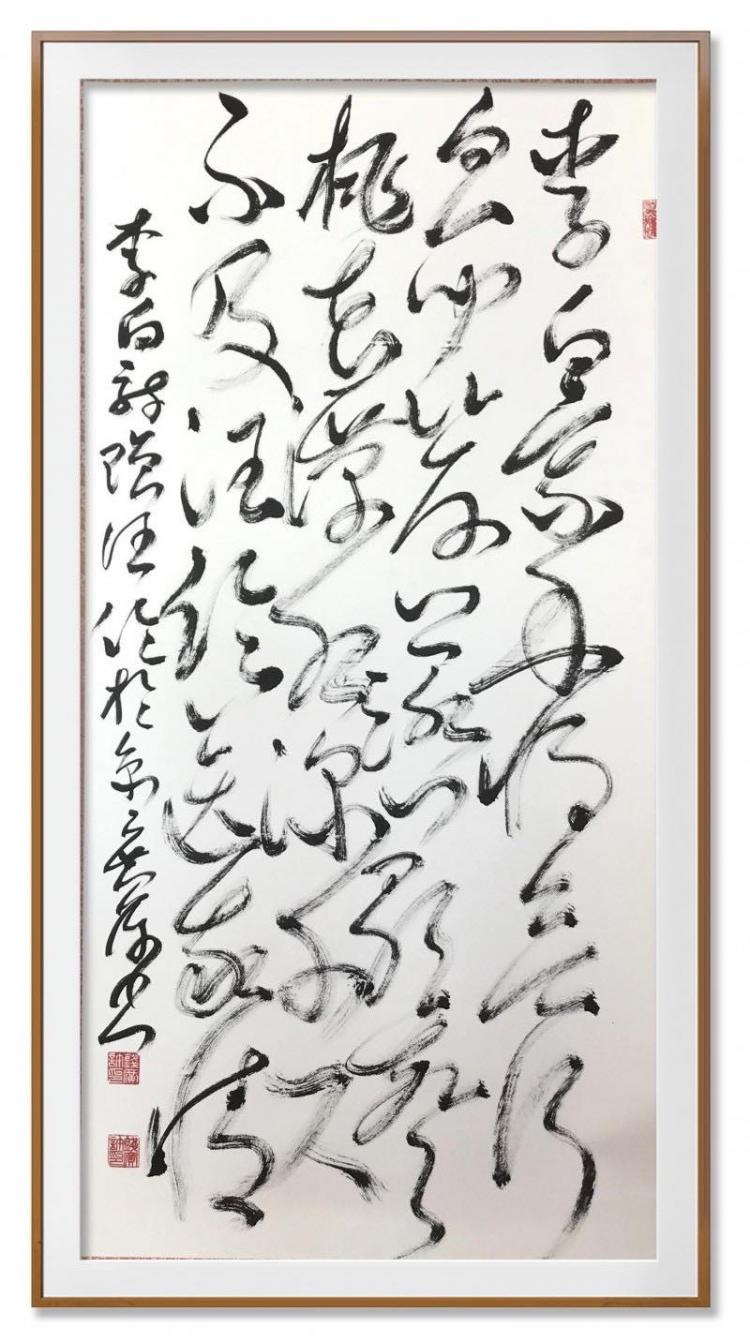 李白乘舟將欲行
忽聞岸上踏歌聲
桃花潭水深千尺
不及汪倫送我情
李白詩贈汪倫於京